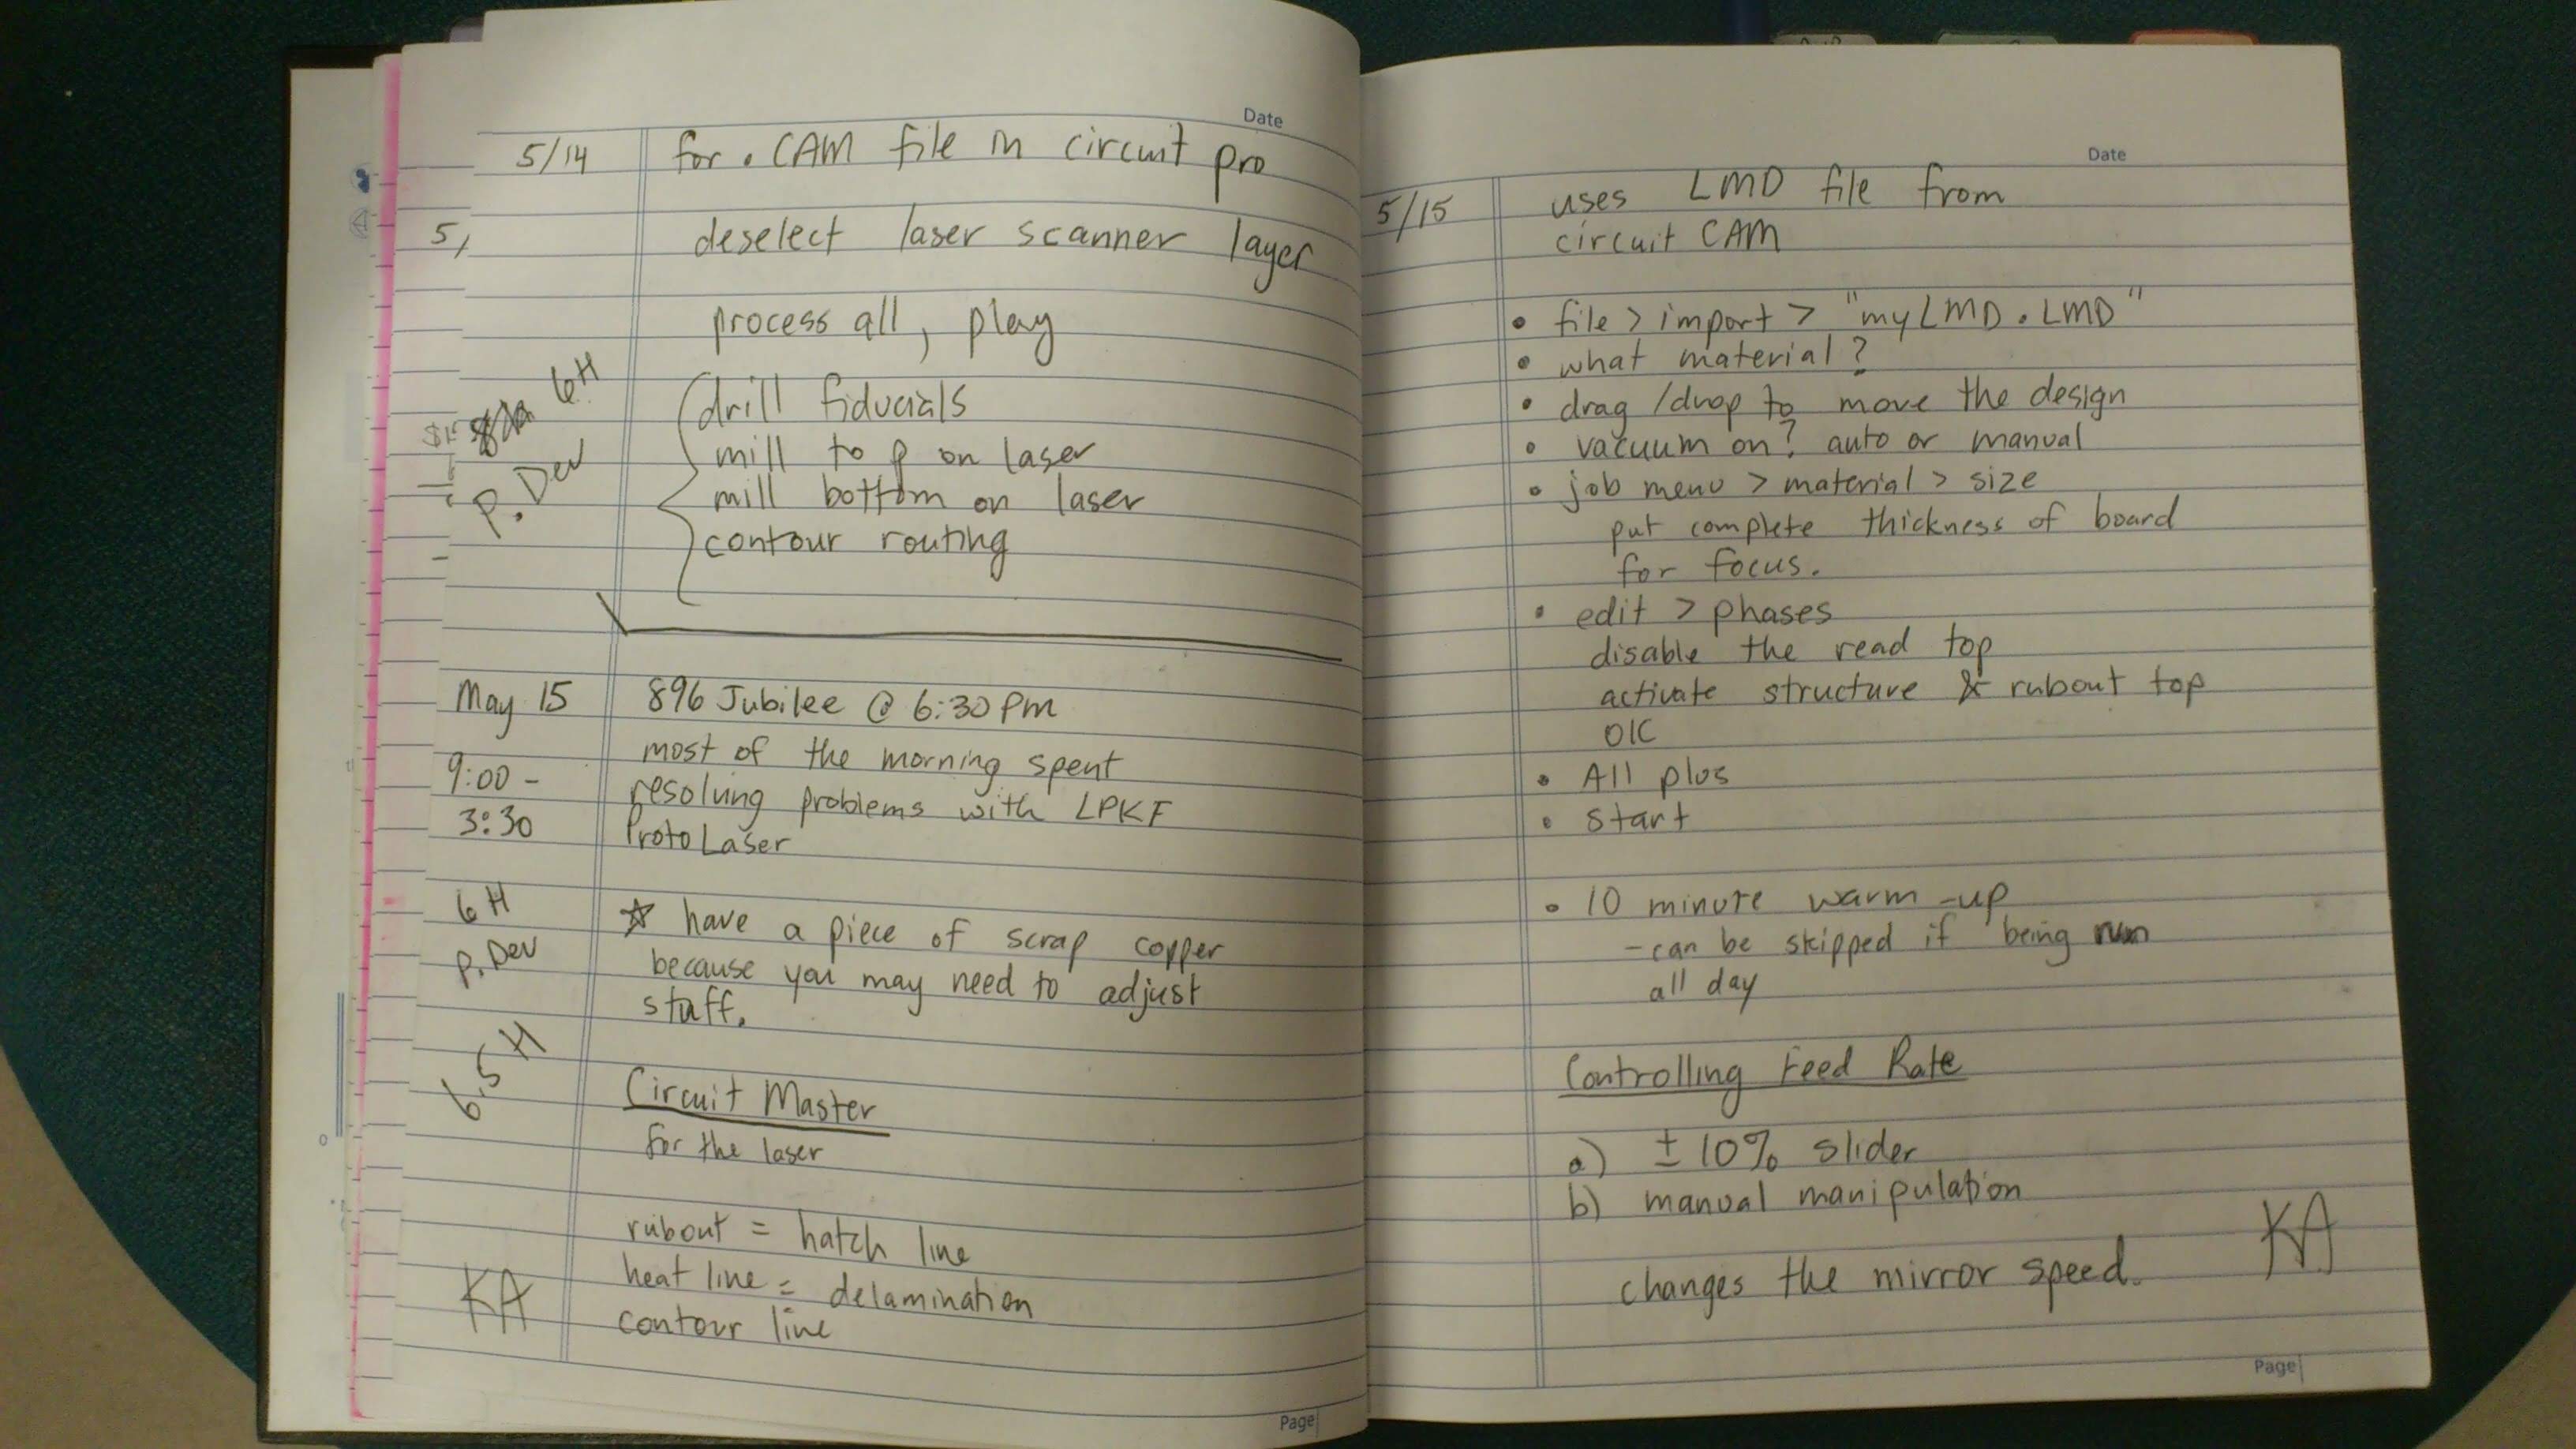 Date
5/14 for .CAM file in circuit pro
5,
deselect laser scanner layer
process all, play
6H
P. Dev
drill fiducials
mill top on laser
mill bottom on laser
contour routing
May 15 896 Jubilee @ 6:30 PM
most of the morning spent
9:00 - resolving problems with LPKF
3:30 ProtoLaser
6 H
P. Dev
☆ have a piece of scrap copper
because you may need to adjust
stuff.
6.5 H
Circuit Master
for the laser
rubout = hatch line
heat line = delamination
contour line
KA
Page
Date
5/15 uses LMD file from
circuit CAM
• file > import > "myLMD.LMD"
• what material?
• drag/drop to move the design
• vacuum on? auto or manual
• job menu > material > size
put complete thickness of board
for focus.
• edit > phases
disable the read top
activate structure & rubout top
OK
• All plus
• start
• 10 minute warm-up
- can be skipped if being run
all day
Controlling Feed Rate
a) ± 10% slider
b) manual manipulation
changes the mirror speed.
KA
Page